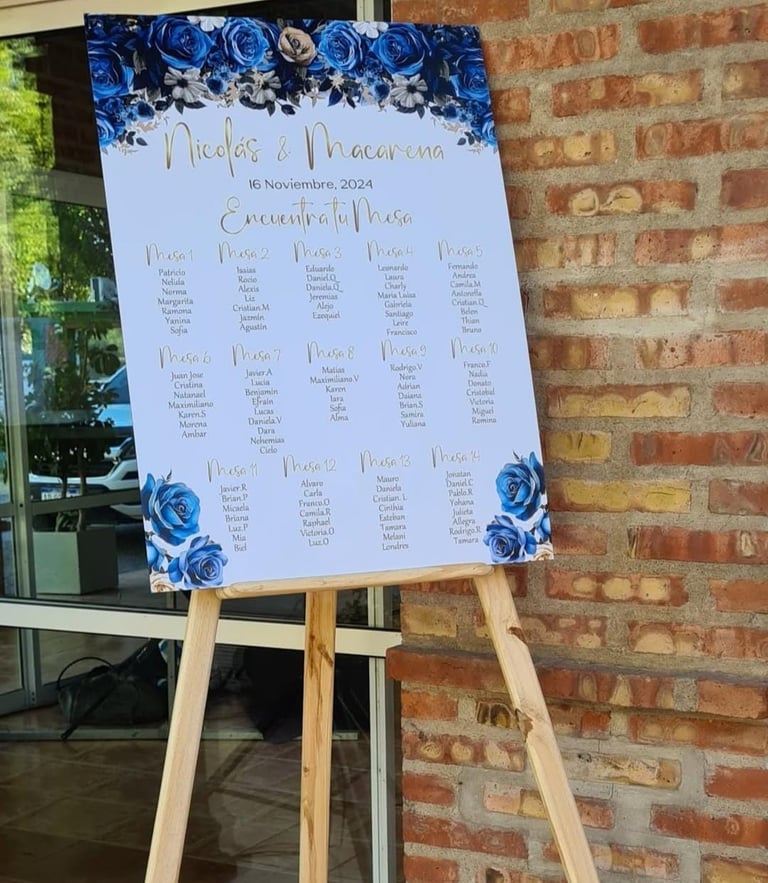 Nicolás & Macarena
16 Noviembre, 2024
Encuentra tu Mesa
Mesa 1
Patricio
Nelida
Norma
Margarita
Ramona
Yanina
Sofia
Mesa 2
Isaias
Rocio
Alexis
Liz
Cristian.M
Jazmín
Agustín
Mesa 3
Eduardo
Daniel.Q
Daniela.Q
Jeremias
Alejo
Ezequiel
Mesa 4
Leonardo
Laura
Charly
Maria Luisa
Gabriela
Santiago
Leire
Francisco
Mesa 5
Fernando
Andrea
Camila.M
Antonella
Cristian.Q
Belen
Thian
Bruno
Mesa 6
Juan Jose
Cristina
Natanael
Maximiliano
Karen.S
Morena
Ambar
Mesa 7
Javier.A
Lucia
Benjamín
Efraín
Lucas
Daniela.V
Dara
Nehemias
Cielo
Mesa 8
Matias
Maximiliano.V
Karen
Iara
Sofia
Alma
Mesa 9
Rodrigo.V
Nora
Adrian
Daiana
Brian.S
Samira
Yuliana
Mesa 10
Franco.F
Nadia
Donato
Cristobal
Victoria
Miguel
Romina
Mesa 11
Javier.R
Brian.P
Micaela
Briana
Luz.P
Mia
Biel
Mesa 12
Alvaro
Carla
Franco.O
Camila.R
Raphael
Victoria.O
Luz.O
Mesa 13
Mauro
Daniela
Cristian. L
Cinthia
Esteban
Tamara
Melani
Londres
Mesa 14
Jonatan
Daniel.C
Pablo.R
Yohana
Julieta
Allegra
Rodrigo.R
Tamara